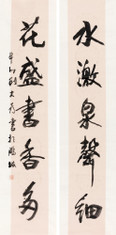 水激泉聲細
花盛書香多